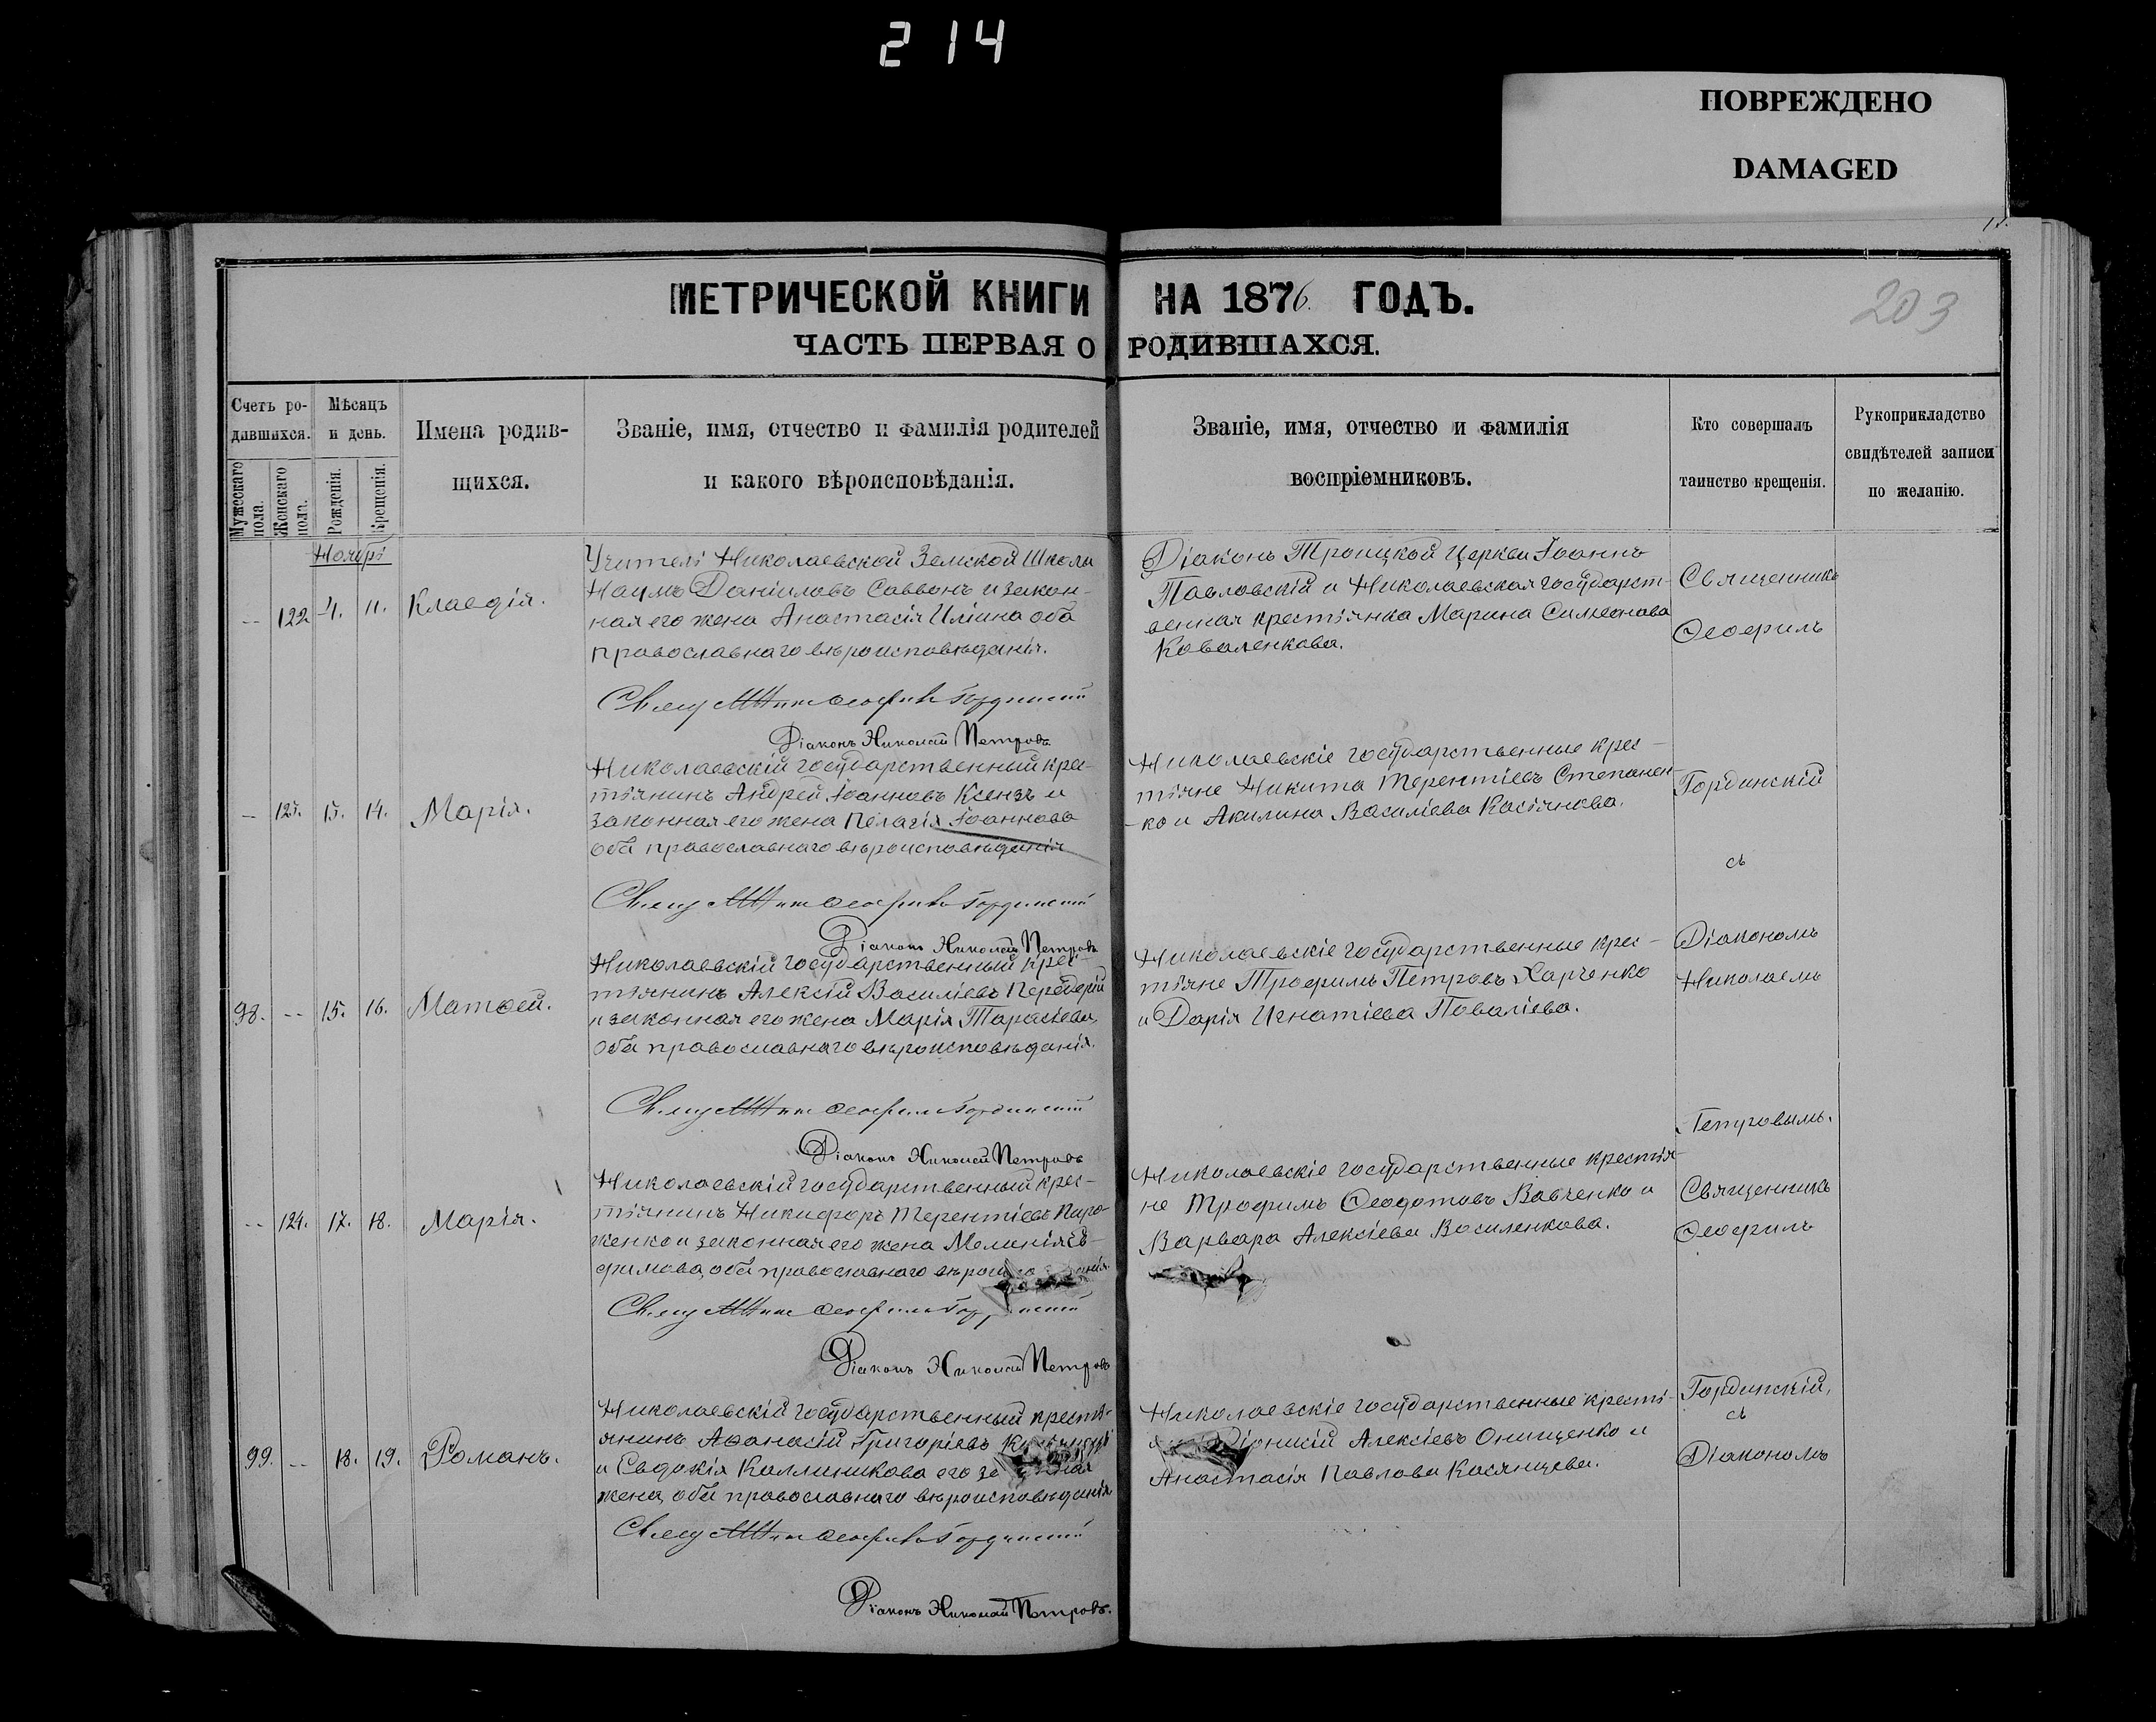 214
ПОВРЕЖДЕНО
DAMAGED
203
МЕТРИЧЕСКОЙ КНИГИ НА 1876. ГОДЪ.
ЧАСТЬ ПЕРВАЯ О РОДИВШАХСЯ.
Счетъ ро-
дившихся.
Мужескаго пола.
Женскаго пола.
Мѣсяцъ
и день.
Рожденія.
Крещенія.
Имена родив-
шихся.
Званіе, имя, отчество и фамилія родителей
и какого вѣроисповѣданія.
Званіе, имя, отчество и фамилія
воспріемниковъ.
Кто совершалъ
таинство крещенія.
Рукоприкладство
свидѣтелей записи
по желанію.
Ноябрь
-- 122 11. Клавдія.
Учитель Николаевской Земской Школы
Наумъ Даніиловъ Саввонъ и закон-
ная его жена Анастасія Иліина оба
православнаго вѣроисповѣданія.
Діаконъ Николай Петровъ
Діаконъ Троицкой Церкви Іоаннъ
Павловскій и Николаевская государст-
венная крестьянка Марина Симеонова
Коваленкова.
Священникъ
Ѳеофилъ
-- 14. Марія.
Николаевскій государственный крес-
тьянинъ Андрей Іоанновъ Ксензъ и
законная его жена Пелагія Іоаннова
оба православнаго вѣроисповѣданія
Діаконъ Николай Петровъ
Николаевскіе государственные крес-
тьяне Никита Терентіевъ Степанен-
-ко и Акилина Василіева Касьянова.
Гординскій
съ
98. -- 15. 16. Матѳей.
Николаевскій государственный крес-
тьянинъ Алексій Василіевъ Переберій
и законная его жена Марія Тарасіева,
оба православнаго вѣроисповѣданія.
Діаконъ Николай Петровъ
Николаевскіе государственные крес-
тьяне Трофимъ Петровъ Харченко
и Дарія Игнатіева Повaліева.
Діакономъ
Николаемъ
Петровымъ.
-- 124. 17. 18. Марія.
Николаевскій государственный крес-
тьянинъ Никифоръ Терентіевъ Пиро-
женко и законная его жена Меланія Ев-
фимова, оба православнаго
Діаконъ Николай Петровъ
Николаевскіе государственные крестья-
не Трофимъ Ѳеодотовъ Вовченко и
Варвара Алексіева Василенкова.
Священникъ
Ѳеофилъ
99. -- 18. 19. Романъ.
Николаевскій государственный кресть-
янинъ Аѳанасій Григоріевъ
и Евдокія Каллиникова его
жена, оба православнаго вѣроисповѣданія
Діаконъ Николай Петровъ.
Николаевскіе государственные кресть-
Діонисій Алексіевъ Онищенко и
Анастасія Павлова Касянцева.
Гординскій,
съ
Діакономъ